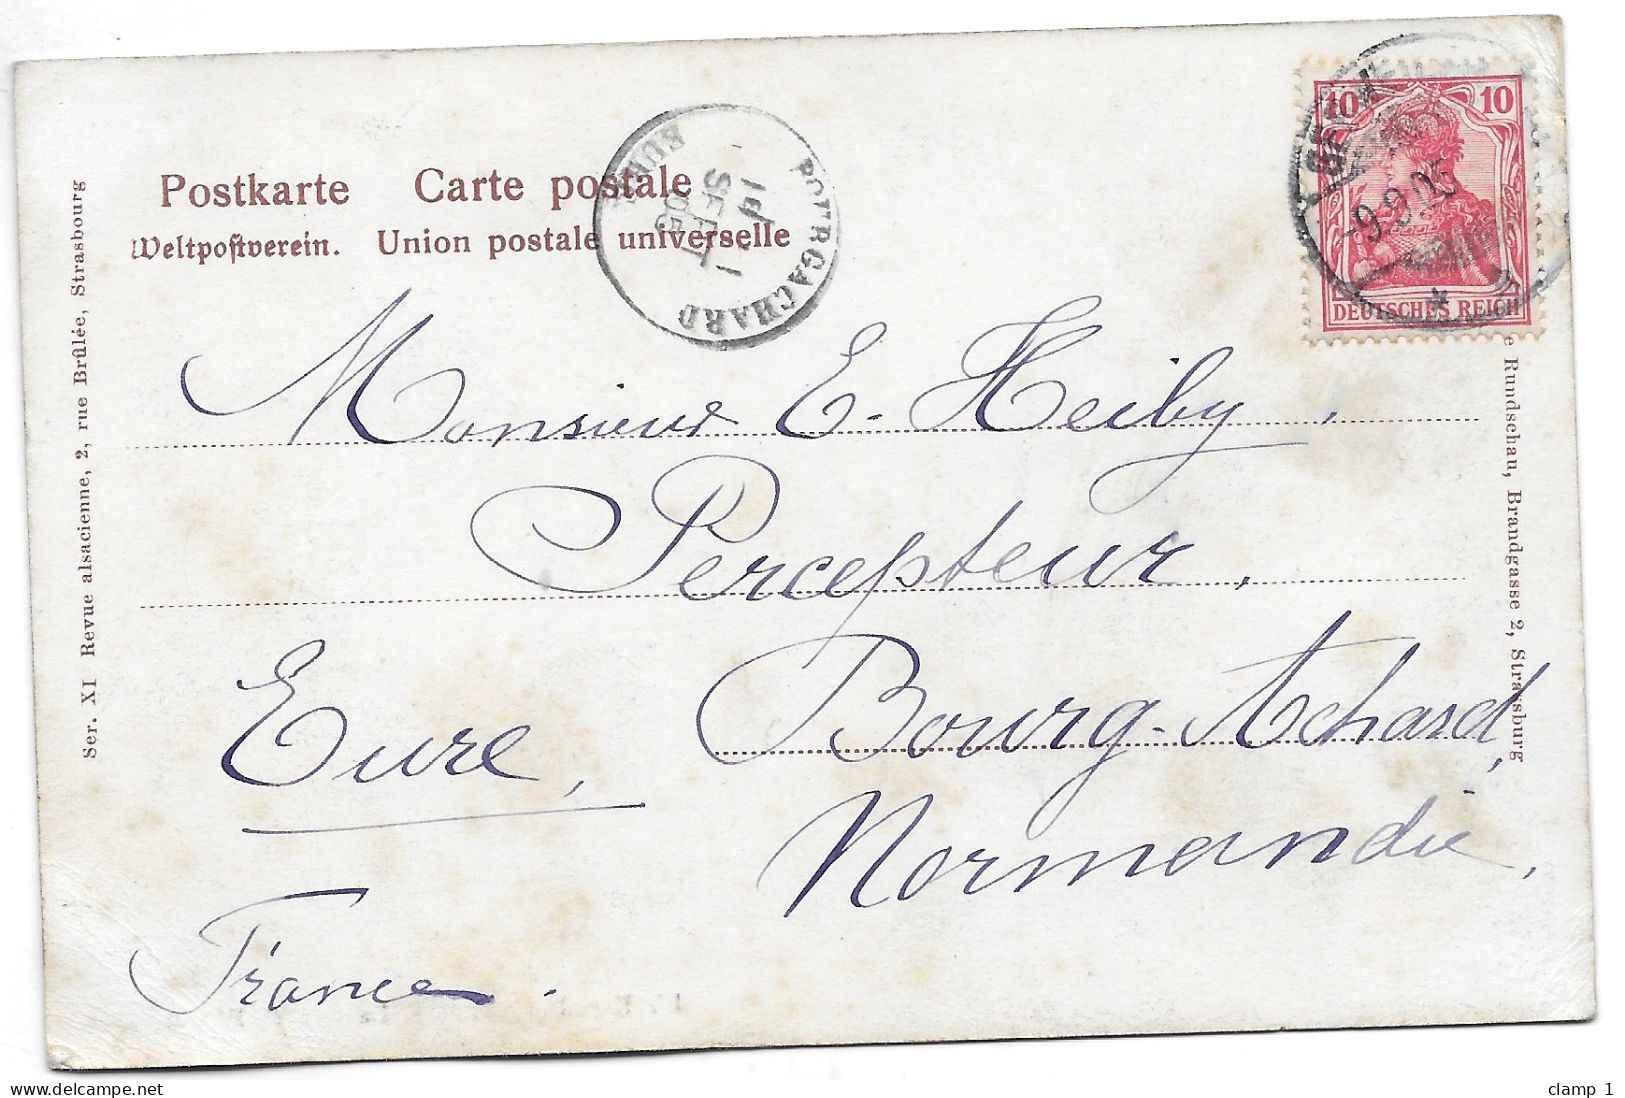 Postkarte Carte postale
Weltpostverein. Union postale universelle
BOURGACHARD
EURE
SEPT
05
10 10
-9.9.05
DEUTSCHES REICH
Monsieur E. Heiby,
Percepteur,
Bourg-Achard,
Eure,
Normandie,
France.
Ser. XI Revue alsacienne, 2, rue Brûlée, Strasbourg
e Rundschau, Brandgasse 2, Strassburg
www.delcampe.net
clamp 1